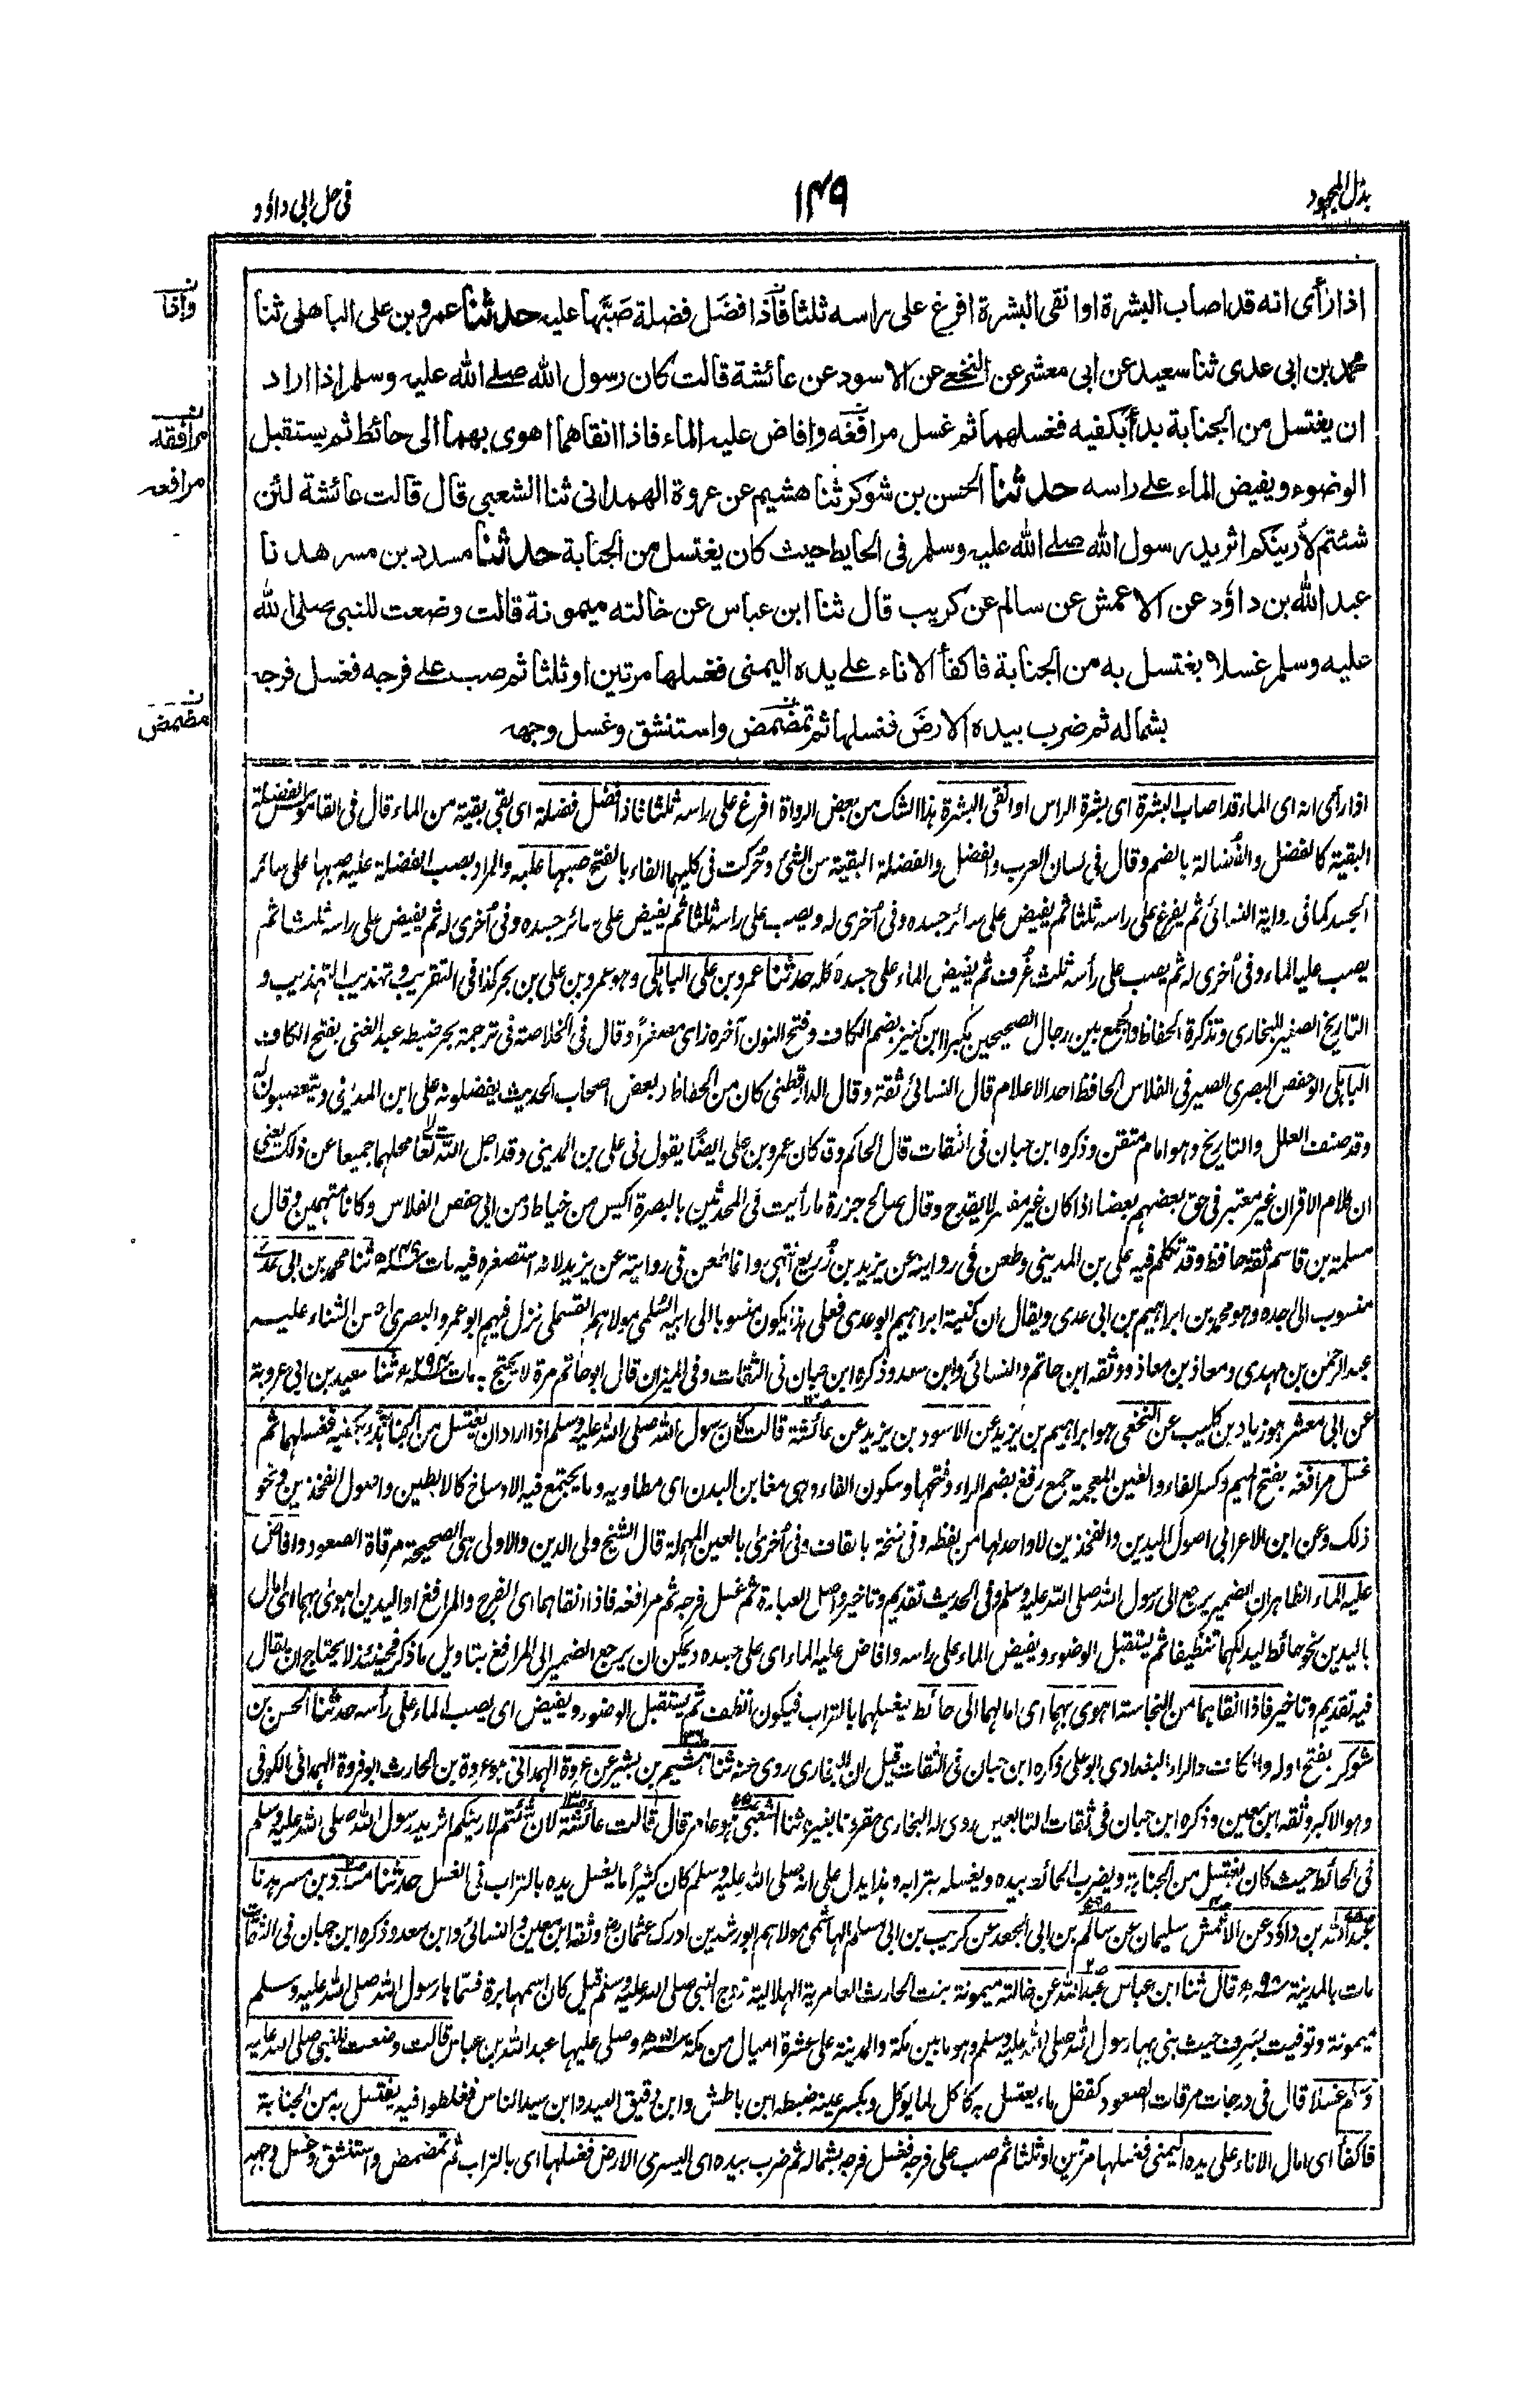 بذل المجهود
١٤٩
فى حل ابى داؤد
اذا رأى انه قد اصاب البشرة او انقى البشرة افرغ على راسه ثلثا فاذا فضل فضلة صبها عليه حدثنا عمرو بن على الباهلى ثنا
وإذا
محمد بن ابى عدى ثنا سعيد عن ابى معشر عن النخعى عن الاسود عن عائشة قالت كان رسول الله صلى الله عليه وسلم اذا اراد
ان يغتسل من الجنابة بدأ بكفيه فغسلهما ثم غسل مرافغه وافاض عليه الماء فاذا انقاهما اهوى بهما الى حائط ثم يستقبل
مرافقه
الوضوء ويفيض الماء على راسه حدثنا الحسن بن شوكر ثنا هشيم عن عروة الهمدانى ثنا الشعبى قال قالت عائشة لئن
مرافعه
شئتم لأرينكم اثر يد رسول الله صلى الله عليه وسلم فى الحايط حيث كان يغتسل من الجنابة حدثنا مسدد بن مسرهد نا
عبد الله بن داؤد عن الاعمش عن سالم عن كريب قال ثنا ابن عباس عن خالته ميمونة قالت وضعت للنبى صلى الله
عليه وسلم غسلا يغتسل به من الجنابة فاكفأ الاناء على يده اليمنى فغسلها مرتين او ثلثا ثم صب على فرجه فغسل فرجه
بشماله ثم ضرب بيده الارض فغسلها ثم تمضمض واستنشق وغسل وجهه
مضمض
اذا رأى انه اى الماء قد اصاب البشرة اى بشرة الراس او انقى البشرة هذا الشك من بعض الرواة افرغ على راسه ثلثا فاذا فضل فضلة اى بقى بقية من الماء قال فى القاموس الفضلة
البقية كالفضل والفُضالة بالضم وقال فى لسان العرب والفضل والفضلة البقية من الشئ وحركت فى كليهما الفاء بالفتح صبها عليه والمراد بصب الفضلة عليه صبها على سائر
الجسد كما فى رواية النسائى ثم يفرغ على راسه ثلثا ثم يفيض على سائر جسده وفى أخرى له ويصب على راسه ثلثا ثم يفيض على سائر جسده وفى أخرى له ثم يفيض على راسه ثلثا ثم
يصب عليه الماء وفى أخرى له ثم يصب على رأسه ثلث غُرف ثم يفيض الماء على جسده كله حدثنا عمرو بن على الباهلى وهو عمرو بن على بن بحر كذا فى التقريب وتهذيب التهذيب و
التاريخ الصغير للبخارى وتذكرة الحفاظ والجمع بين رجال الصحيحين بكبر ابن كنيز بضم الكاف وفتح النون آخره زاى مصغراً وقال فى الخلاصة فى ترجمة بحر ضبطه عبد الغنى بفتح الكاف
الباهلى ابو حفص البصرى الصيرفى الفلاس الحافظ احد الاعلام قال النسائى ثقة وقال الدارقطنى كان من الحفاظ وبعض اصحاب الحديث يفضلونه على ابن المدينى ويتعصبون له
وقد صنف العلل والتاريخ وهو امام متقن وذكره ابن حبان فى الثقات قال الحاكم وقد كان عمرو بن على ايضًا يقول فى على بن المدينى وقد اجل الله تعالى محلهما جميعا عن ذلك يعنى
ان كلام الاقران غير معتبر فى حق بعضهم بعضا اذا كان غير مفسر لا يقدح وقال صالح جزرة ما رأيت فى المحدثين بالبصرة اكيس من خياط ومن ابى حفص الفلاس وكانا متهمين وقال
مسلمة بن قاسم ثقة حافظ وقد تكلم فيه على بن المدينى وطعن فى روايته عن يزيد بن زُريع انتهى وانما طعن فى روايته عن يزيد لانه استصغره فيه مات سنه ٢٤٩ه ثنا محمد بن ابى عدى
منسوب الى جده وهو محمد بن ابراهيم بن ابى عدى ويقال ان كنية ابراهيم ابو عدى فعلى هذا يكون منسوبا الى ابيه السُلمى مولاهم القسملى نزل فيهم ابو عمرو البصرى احسن الثناء عليه
عبد الرحمن بن مهدى ومعاذ بن معاذ ووثقه ابن حاتم والنسائى وابن سعد وذكره ابن حبان فى الثقات وفى الميزان قال ابو حاتم مرة لا يحتج به مات سنه ١٩٤ه ثنا سعيد بن ابى عروبة
عن ابى معشر هو زياد بن كليب عن النخعى هو ابراهيم بن يزيد عن الاسود بن يزيد عن عائشة قالت كان رسول الله صلى الله عليه وسلم اذا اراد ان يغتسل من الجنابة بدأ بكفيه فغسلهما ثم
غسل مرافغه بفتح الميم وكسر الفاء والغين المعجمة جمع رفغ بضم الراء وفتحها وسكون الفاء وهى مغابن البدن اى مطاويه وما يجتمع فيه الاوساخ كالابطين واصول الفخذين ونحو
ذلك وعن ابن الاعرابى اصول اليدين والفخذين لا واحد لها من لفظه وفى نسخة بالقاف وفى أخرى بالعين المهملة قال الشيخ ولى الدين والاولى هى الصحيحة مرقاة الصعود وافاض
عليه الماء الظاهر ان الضمير يرجع الى رسول الله صلى الله عليه وسلم وفى الحديث تقديم وتاخير واصل العبارة ثم غسل فرجه ثم مرافغه فاذا انقاهما اى الفرج والمرافغ او اليدين اهوى بهما اى امال
باليدين نحو حائط ليدلكهما تنظيفا ثم يستقبل الوضوء ويفيض الماء على راسه وافاض عليه الماء اى على جسده ويمكن ان يرجع الضمير الى المرافغ بتاويل ما ذكر فحينئذ لا يحتاج ان يقال
فيه تقديم وتاخير فاذا انقاهما من النجاسة اهوى بهما اى امالهما الى حائط ليغسلهما بالتراب فيكون انظف ثم يستقبل الوضوء ويفيض اى يصب الماء على رأسه حدثنا الحسن بن
شوكر بفتح اوله والكاف والراء البغدادى ابو على ذكره ابن حبان فى الثقات قيل ان البخارى روى عنه ثنا هشيم بن بشير عن عروة الهمدانى هو عروة بن الحارث ابو فروة الهمدانى الكوفى
وهو الاكبر وثقه ابن معين وذكره ابن حبان فى ثقات التابعين روى له البخارى مقرونا بغيره ثنا الشعبى هو عامر قال قالت عائشة لان شئتم لارينكم اثر يد رسول الله صلى الله عليه وسلم
فى الحائط حيث كان يغتسل من الجنابة ويضرب الحائط بيده ويغسله بترابه وهذا يدل على انه صلى الله عليه وسلم كان كثيراً ما يغسل يده بالتراب فى الغسل حدثنا مسدد بن مسرهد نا
عبد الله بن داؤد عن الاعمش سليمان عن سالم بن ابى الجعد عن كريب بن ابى مسلم الهاشمى مولاهم ابو رشدين ادرك عثمان وثقه ابن معين والنسائى وابن سعد وذكره ابن حبان فى الثقات
مات بالمدينة سنه ٩٨ه قال ثنا ابن عباس عبد الله عن خالته ميمونة بنت الحارث العامرية الهلالية زوج النبى صلى الله عليه وسلم قيل كان اسمها برة فسماها رسول الله صلى الله عليه وسلم
ميمونة وتوفيت بسرف حيث بنى بها رسول الله صلى الله عليه وسلم وهو ما بين مكة والمدينة على عشرة اميال من مكة وصلى عليها عبد الله بن عباس قالت وضعت للنبى صلى الله عليه
وسلم غسلا قال فى درجات مرقات الصعود كقفل ماء يغتسل به كأكل لما يوكل وبكسر عينه ضبطه ابن باطش وابن دقيق العيد وابن سيد الناس فغلطوا فيه يغتسل به من الجنابة
فاكفأ اى امال الاناء على يده اليمنى فغسلها مرتين او ثلثا ثم صب على فرجه فغسل فرجه بشماله ثم ضرب بيده اى اليسرى الارض فغسلها اى بالتراب ثم تمضمض واستنشق وغسل وجهه